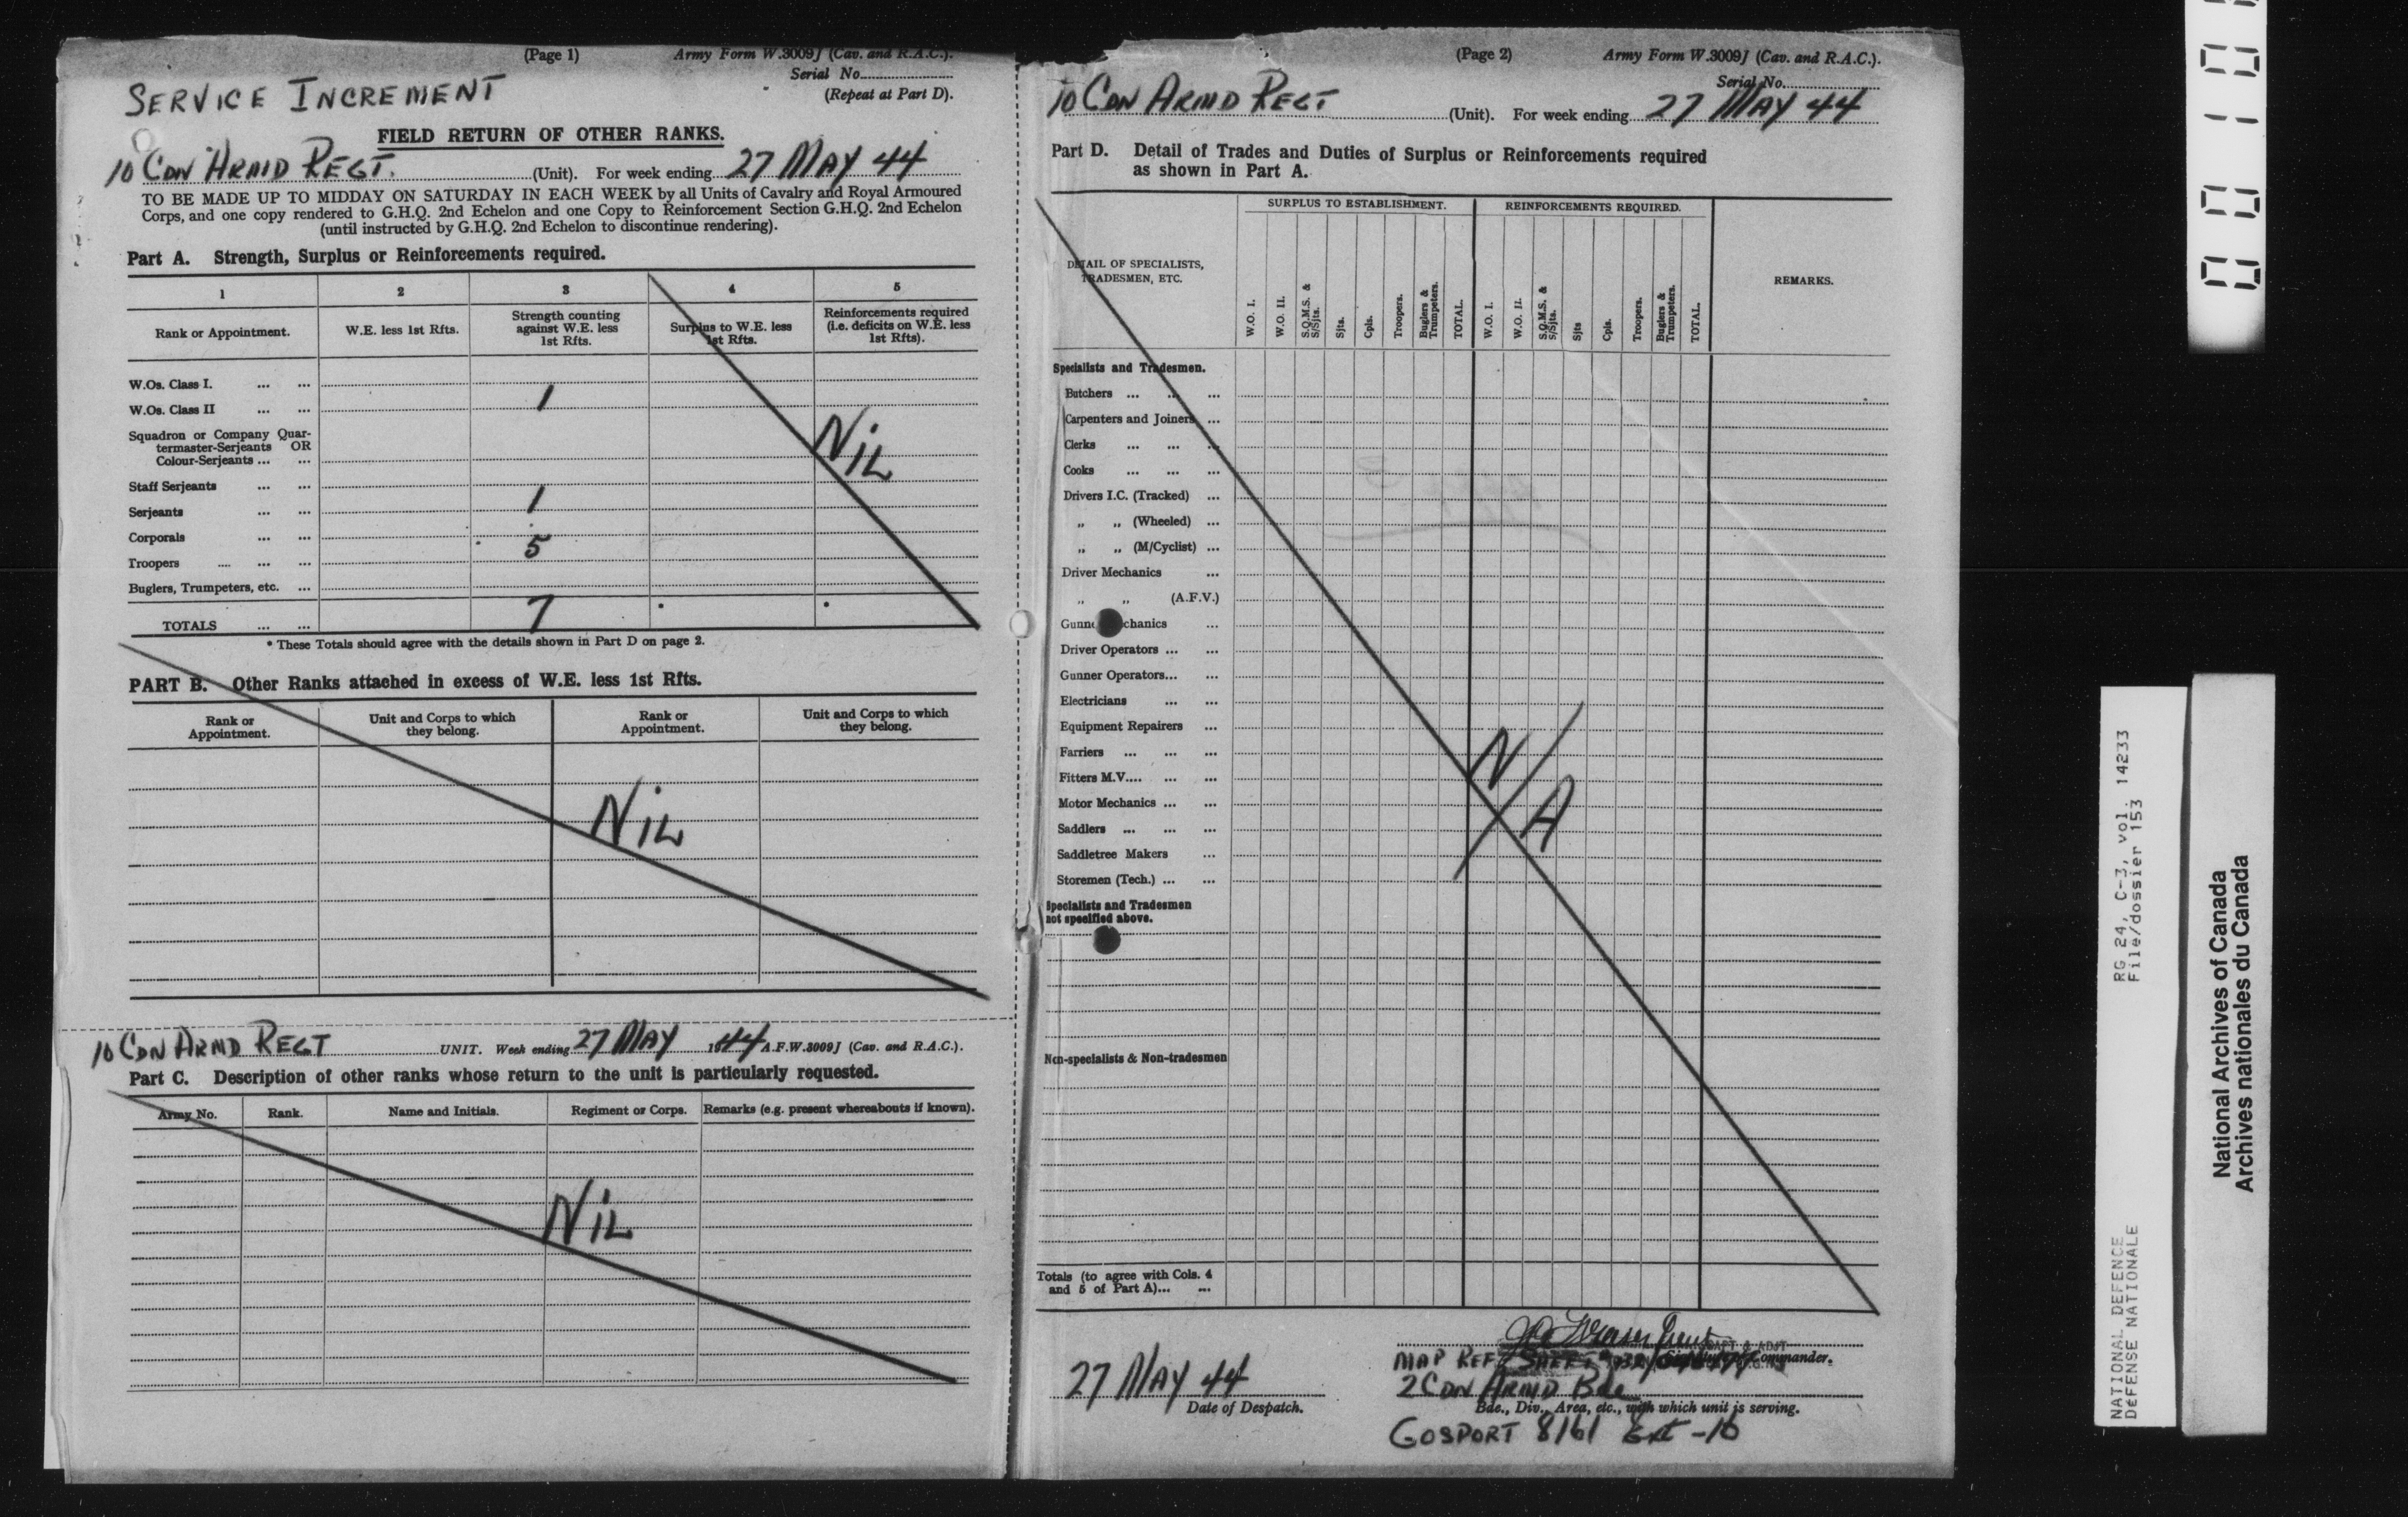 (Page 1) Army Form W.3009J (Cav. and R.A.C.).
Serial No.
(Repeat at Part D).
SERVICE INCREMENT
FIELD RETURN OF OTHER RANKS.
10 CDN ARMD REGT. (Unit). For week ending 27 MAY 44
TO BE MADE UP TO MIDDAY ON SATURDAY IN EACH WEEK by all Units of Cavalry and Royal Armoured
Corps, and one copy rendered to G.H.Q. 2nd Echelon and one Copy to Reinforcement Section G.H.Q. 2nd Echelon
(until instructed by G.H.Q. 2nd Echelon to discontinue rendering).
Part A. Strength, Surplus or Reinforcements required.
1 2 3 4 5
Rank or Appointment.
W.E. less 1st Rfts.
Strength counting
against W.E. less
1st Rfts.
Surplus to W.E. less
1st Rfts.
Reinforcements required
(i.e. deficits on W.E. less
1st Rfts).
W.Os. Class I. ... ...
W.Os. Class II ... ... 1
Squadron or Company Quar-
termaster-Serjeants OR
Colour-Serjeants ... ...
NIL
Staff Serjeants ... ...
Serjeants ... ... 1
Corporals ... ... 5
Troopers .... ... ...
Buglers, Trumpeters, etc. ...
TOTALS ... ... 7 * *
* These Totals should agree with the details shown in Part D on page 2.
PART B. Other Ranks attached in excess of W.E. less 1st Rfts.
Rank or
Appointment.
Unit and Corps to which
they belong.
Rank or
Appointment.
Unit and Corps to which
they belong.
NIL
10 CDN ARMD REGT UNIT. Week ending 27 MAY 1944 A.F.W.3009J (Cav. and R.A.C.).
Part C. Description of other ranks whose return to the unit is particularly requested.
Army No. Rank. Name and Initials. Regiment or Corps. Remarks (e.g. present whereabouts if known).
NIL
(Page 2) Army Form W.3009J (Cav. and R.A.C.).
Serial No.
10 CDN ARMD REGT (Unit). For week ending 27 MAY 44
Part D. Detail of Trades and Duties of Surplus or Reinforcements required
as shown in Part A.
DETAIL OF SPECIALISTS,
TRADESMEN, ETC.
SURPLUS TO ESTABLISHMENT.
REINFORCEMENTS REQUIRED.
REMARKS.
W.O. I.
W.O. II.
S.Q.M.S. &
S/Sjts.
Sjts.
Cpls.
Troopers.
Buglers &
Trumpeters.
TOTAL.
W.O. I.
W.O. II.
S.Q.M.S. &
S/Sjts.
Sjts
Cpls.
Troopers.
Buglers &
Trumpeters.
TOTAL.
Specialists and Tradesmen.
Butchers ... ... ...
Carpenters and Joiners ...
Clerks ... ... ...
Cooks ... ... ...
Drivers I.C. (Tracked) ...
„ „ (Wheeled) ...
„ „ (M/Cyclist) ...
Driver Mechanics ...
„ „ (A.F.V.)
Gunner Mechanics ...
Driver Operators ... ...
Gunner Operators... ...
Electricians ... ...
Equipment Repairers ...
Farriers ... ... ...
Fitters M.V.... ... ...
Motor Mechanics ... ...
Saddlers ... ... ...
Saddletree Makers ...
Storemen (Tech.) ... ...
N/A
Specialists and Tradesmen
not specified above.
Non-specialists & Non-tradesmen
Totals (to agree with Cols. 4
and 5 of Part A)... ...
MAP REF Commander.
27 MAY 44
Date of Despatch.
2 CDN ARMD Bde
Bde., Div., Area, etc., with which unit is serving.
GOSPORT 8161 Ext -16
RG 24, C-3, vol. 14233
File/dossier 153
NATIONAL DEFENCE
DEFENSE NATIONALE
National Archives of Canada
Archives nationales du Canada